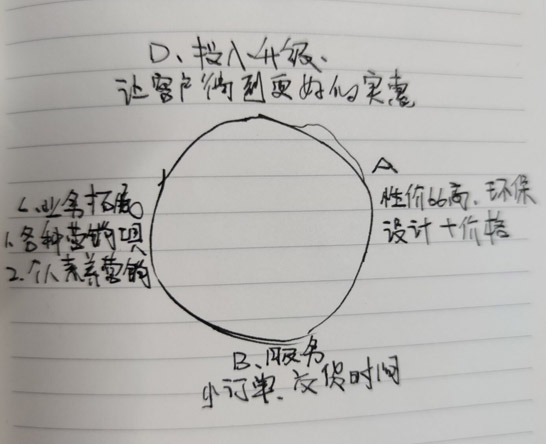 D、投入升级、
让客户得到更好的实惠
A
性价比高、环保
设计+价格
B、服务
小订单、交货时间
C、业务拓展
1、各种营销
2、个人素养营销